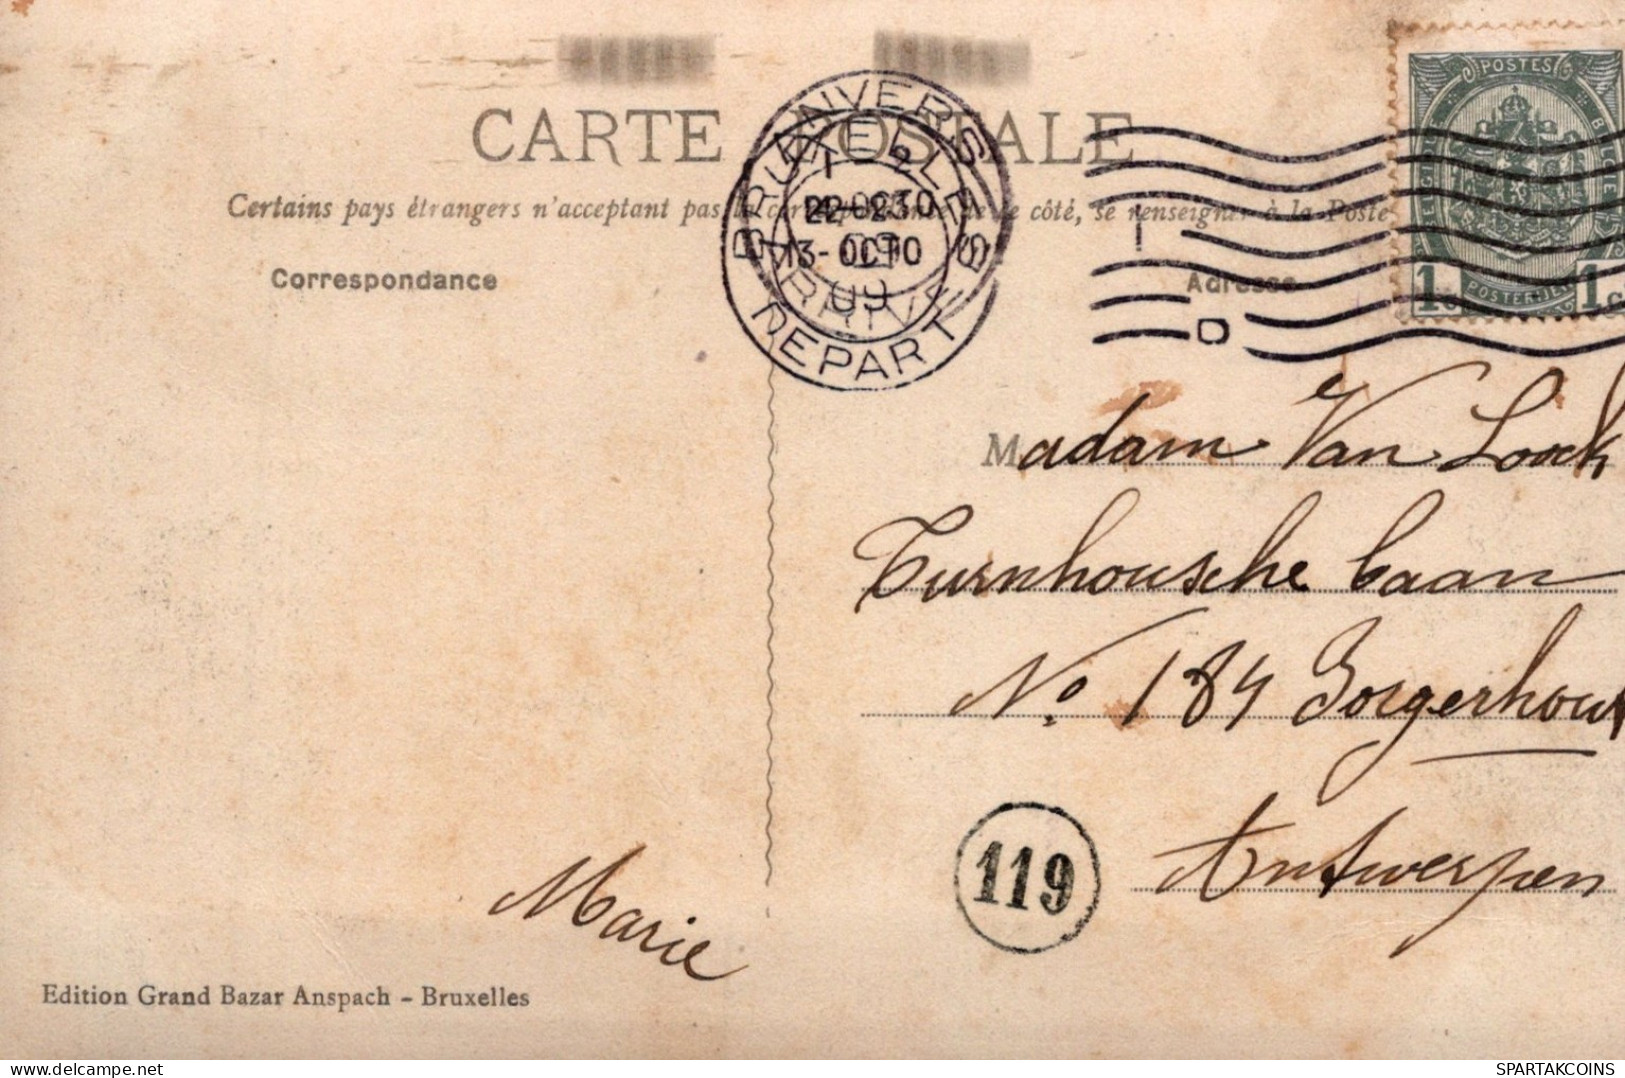 CARTE POSTALE
Certains pays étrangers n'acceptant pas la correspondance de ce côté, se renseigner à la Poste
Correspondance
Adresse
BRUXELLES
DEPART
ANVERS
ARRIVÉE
13- OCT
09
POSTES
BELGIQUE
BELGIË
POSTERIJEN
1c 1c
Madam Van Loock
Turnhousche baan
No. 184 Borgerhout
Antwerpen
119
Marie
Edition Grand Bazar Anspach - Bruxelles
delcampe.net
SPARTAKCOINS